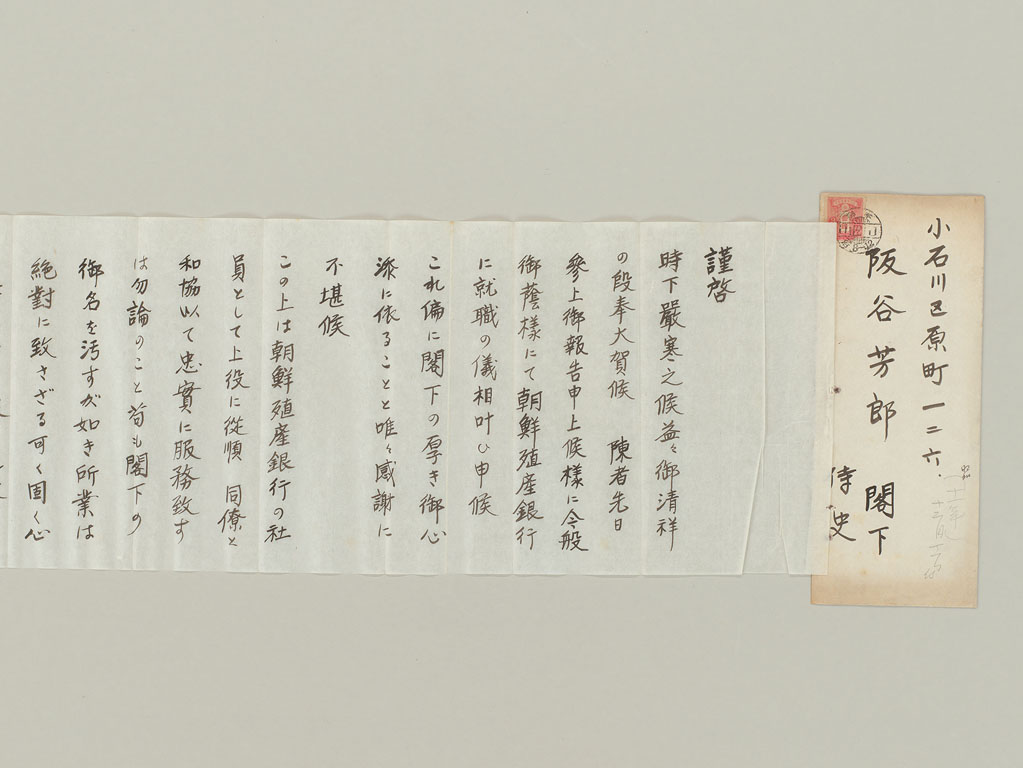 小石川区原町一二六、
阪谷芳郎 閣下
侍史
謹啓
時下嚴寒之候益々御清祥
の段奉大賀候 陳者先日
參上御報告申上候様に今般
御蔭様にて朝鮮殖産銀行
に就職の儀相叶ひ申候
これ偏に閣下の厚き御心
添に依ることと唯々感謝に
不堪候
この上は朝鮮殖産銀行の社
員として上役に從順 同僚と
和協以て忠實に服務致す
は勿論のこと苟も閣下の
御名を汚すが如き所業は
絶對に致さざる可く固く心